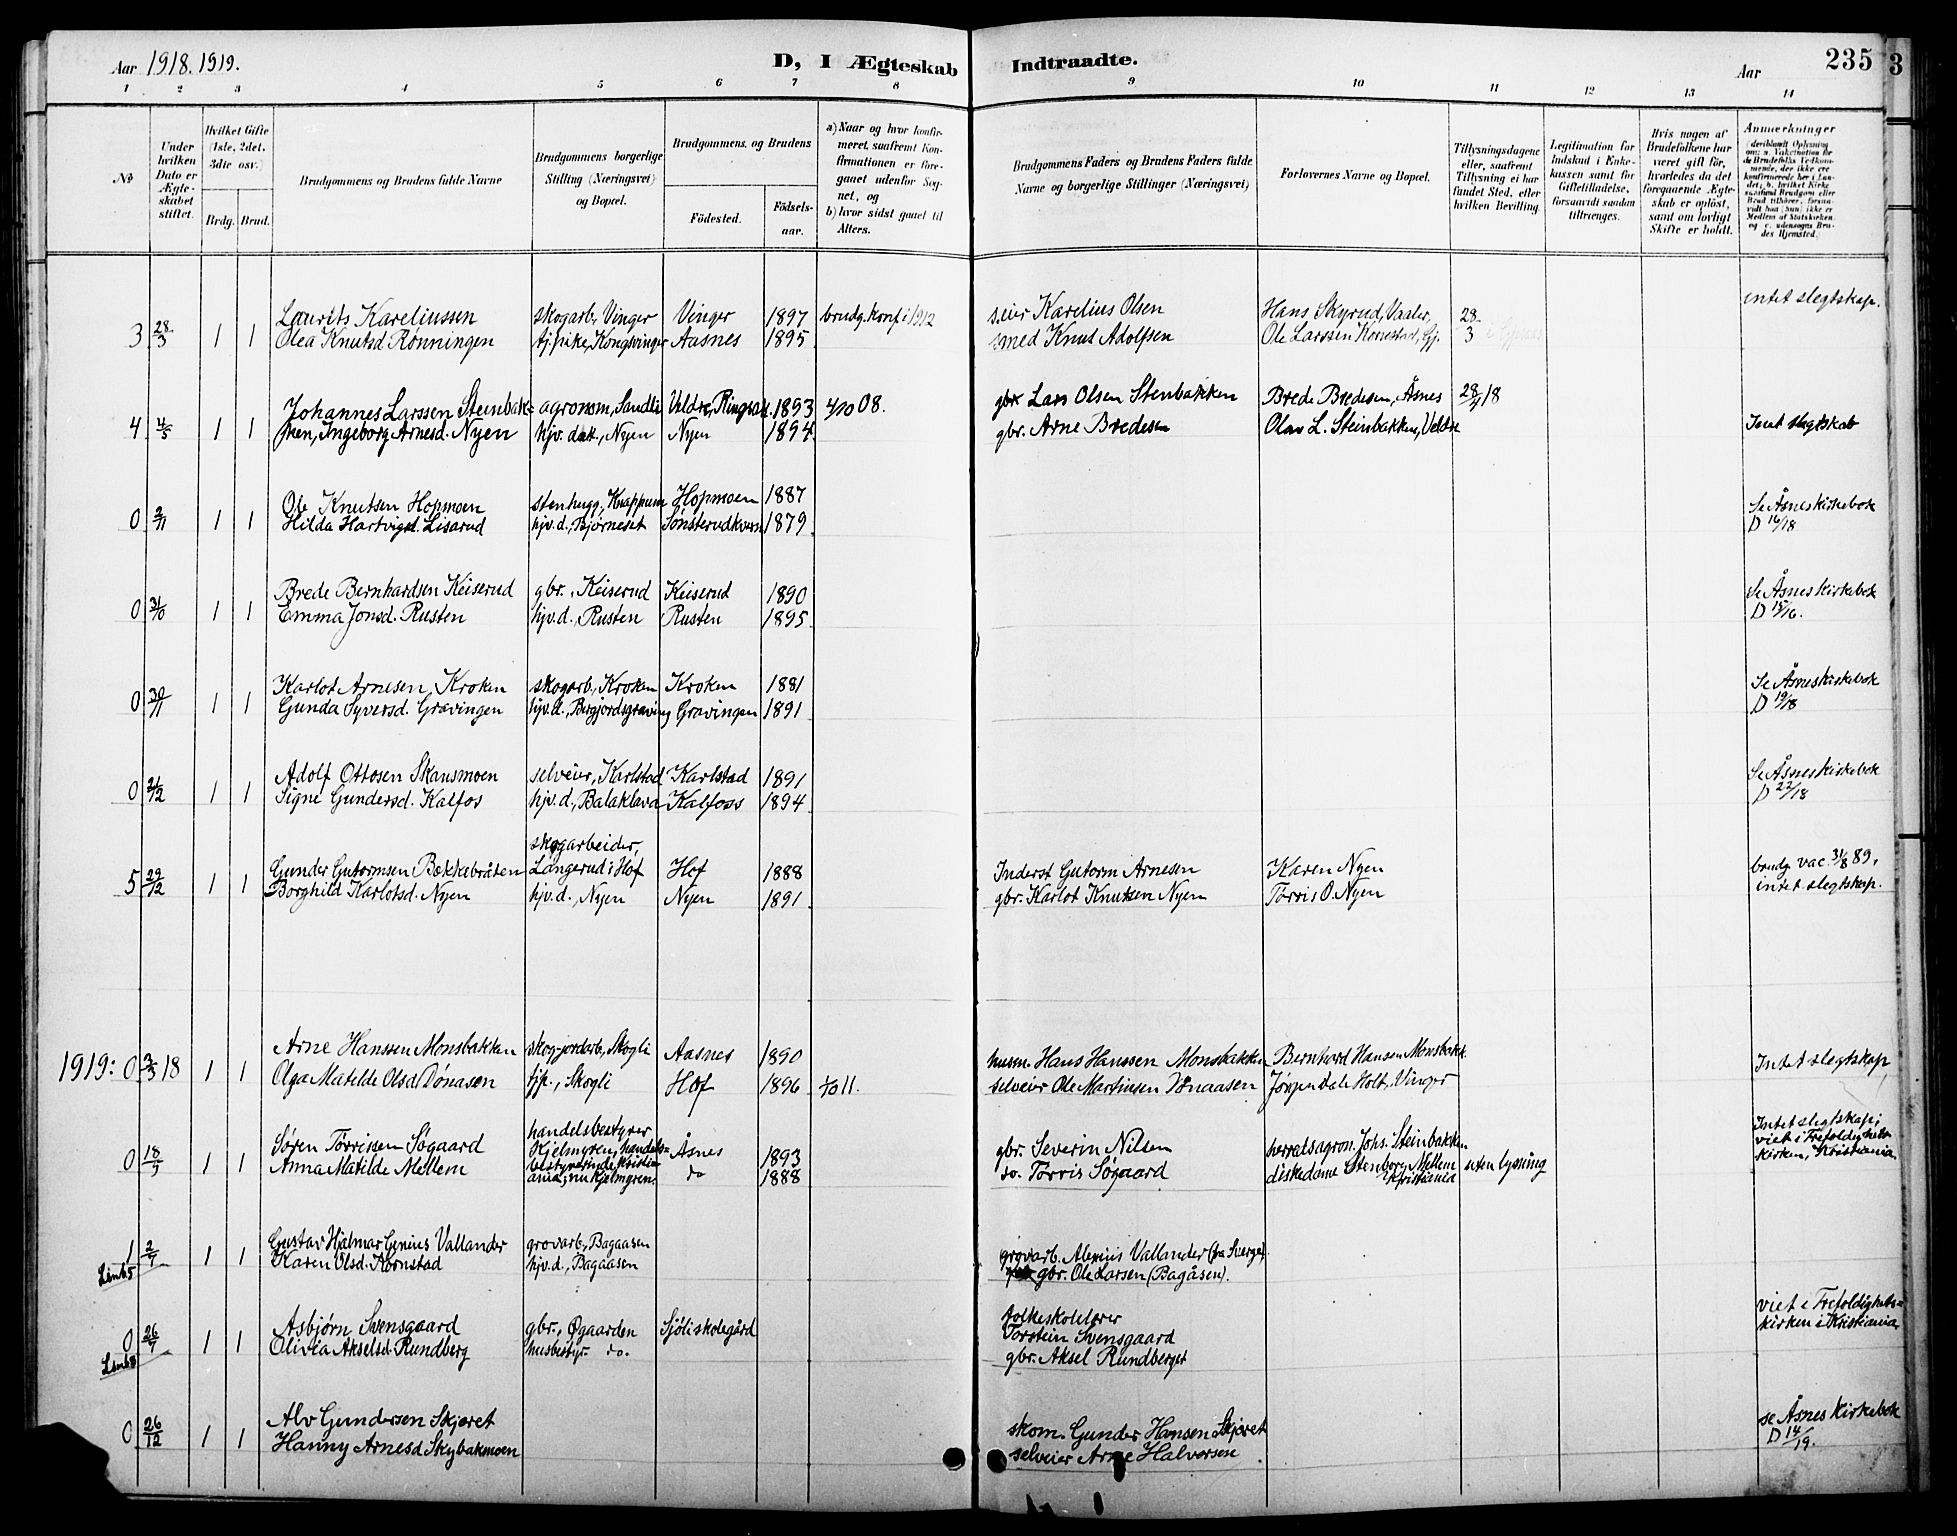 Aar 1918. 1919.
D, I Ægteskab Indtraadte.
Aar
235
3
1 2 3 4 5 6 7 8 9 10 11 12 13 14
No
Under hvilken Dato er Ægteskabet stiftet.
Hvilket Gifte (1ste, 2det, 3die osv.)
Brdg. Brud.
Brudgommens og Brudens fulde Navne
Brudgommens borgerlige Stilling (Næringsvei) og Bopæl.
Brudgommens og Brudens
Födested.
Födselsaar.
a) Naar og hvor konfirmeret, saafremt Konfirmationen er foregaaet udenfor Sognet, og
b) hvor sidst gaaet til Alters.
Brudgommens Faders og Brudens Faders fulde Navne og borgerlige Stillinger (Næringsvei)
Forlovernes Navne og Bopæl.
Tillysningsdagene eller, saafremt Tillysning ei har fundet Sted, efter hvilken Bevilling.
Legitimation for Indskud i Enkekassen samt for Giftetilladelse, forsaavidt saadan tiltrænges.
Hvis nogen af Brudefolkene har været gift før, hvorledes da det foregaaende Ægteskab er oplöst, samt om lovligt Skifte er holdt.
Anmerkninger (deriblandt Oplysning om: a. Vaksination for de Brudefolks Vedkommende, der ikke ere konfirmerede her i Landet; b. hvilket Kirkesamfund Brudgom eller Brud tilhörer, forsaavidt han (hun) ikke er Medlem af Statskirken, og c. udensogns Brudes Hjemsted.
3 28/3 1 1 Laurits Kareliussen skogarb., Vinger Vinger 1897 brudg. konf. i 1912 s.eier Karelius Olsen Hans Skyrud, Vaaler, 28/3 intet slegtskap.
Olea Knutsd. Rönningen tj.pike, Kongsvinger Aasnes 1895 smed Knut Adolfsen Ole Larssen Kornstad, Gj.
4 4/5 1 1 Johannes Larssen Steinbak= agronom, Sandli Veldre, Ringsak. 1893 4/10 08. gbr. Lars Olsen Stenbakken Brede Bredesen, Åsnes 28/4 18
ken, Ingeborg Arnesd. Nyen hjv. dat., Nyen Nyen 1894 gbr. Arne Bredesen Olav L. Steinbakken, Veldre Intet slegtskab
0 2/11 1 1 Ole Knutsen Hopmoen stenhugg., Knappum Hopmoen 1887 Se Åsnes kirkebok
Hilda Hartvigsd. Lisarud hjv.d., Bjørneset Sønsterudkvern 1879 D 16/18
0 31/10 1 1 Brede Bernhardsen Keiserud gbr., Keiserud Keiserud 1890 Se Åsnes kirkebok
Emma Jonsd. Rusten hjv.d., Rusten Rusten 1895 D 15/16.
0 30/11 1 1 Karlot Arnesen, Kroken skogarb., Kroken Kroken 1881 Se Åsnes kirkebok
Gunda Syversd. Gravingen hjv.d., Bergjordsgraving Gravingen 1891 D 19/18
0 21/12 1 1 Adolf Ottosen Skansmoen selveier, Karlstad Karlstad 1891 Se Åsnes kirkebok
Signe Gundersd. Kalfos hjv.d., Balaklava Kalfoss 1894 D 22/18
skogarbeider,
5 29/12 1 1 Gunder Gutormsen Bækkebråten Langerud i Hof Hof 1888 Inderst Gutorm Arnesen Karen Nyen brudg vac. 31/8 89,
Borghild Karlotsd. Nyen hjv.d., Nyen Nyen 1891 gbr. Karlot Knutsen Nyen Tørris O. Nyen intet slegtskap.
1919: 0 2/3 18 1 1 Arne Hanssen Monsbakken skog-jordarb., Skogli Aasnes 1890 husm. Hans Hanssen Monsbakken Bernhard Hansen Monsbakk. Intet slegtskap
Olga Matilde Olsd. Dönasen tjp., Skogli Hof 1896 1/10 11. selveier Ole Martinsen Dönaasen Jørgen Dale Holt, Vinger
0 18/5 1 1 Søren Tørrissen Søgaard handelsbestyrer Kjelmyren, handels= Åsnes 1893 gbr. Severin Nilsen herredsagron. Johs. Steinbakken Intet slegtskap; viet i Trefoldighets=
Anna Matilde Mellem bestyrerinde, Kristiania; nu Kjelmyren. do 1888 do. Tørris Søgaard diskedame Stenborg Mellem Kristiania uten lysning kirken, Kristiania
1 2/7 1 1 Gustav Hjalmar Genius Vallander grovarb., Bagaasen grovarb. Alexius Vallander (fra Sverge)
Karen Olsd. Kornstad hjv.d., Bagaasen gbr. Ole Larsen (Bagåsen).
0 26/7 1 1 Asbjørn Svensgaard gbr., Øgaarden Sjöli skolegård folkeskolelærer Torstein Svensgaard viet i Trefoldighets=
Olivia Akselsd. Rundberg husbestyr. do. gbr. Aksel Rundberget kirken i Kristiania
0 26/12 1 1 Alv Gundersen Skjæret skom. Gunder Hansen Skjæret se Åsnes kirkebok
Hanny Arnesd Skybakmoen selveier Arne Halvorsen D 14/19.